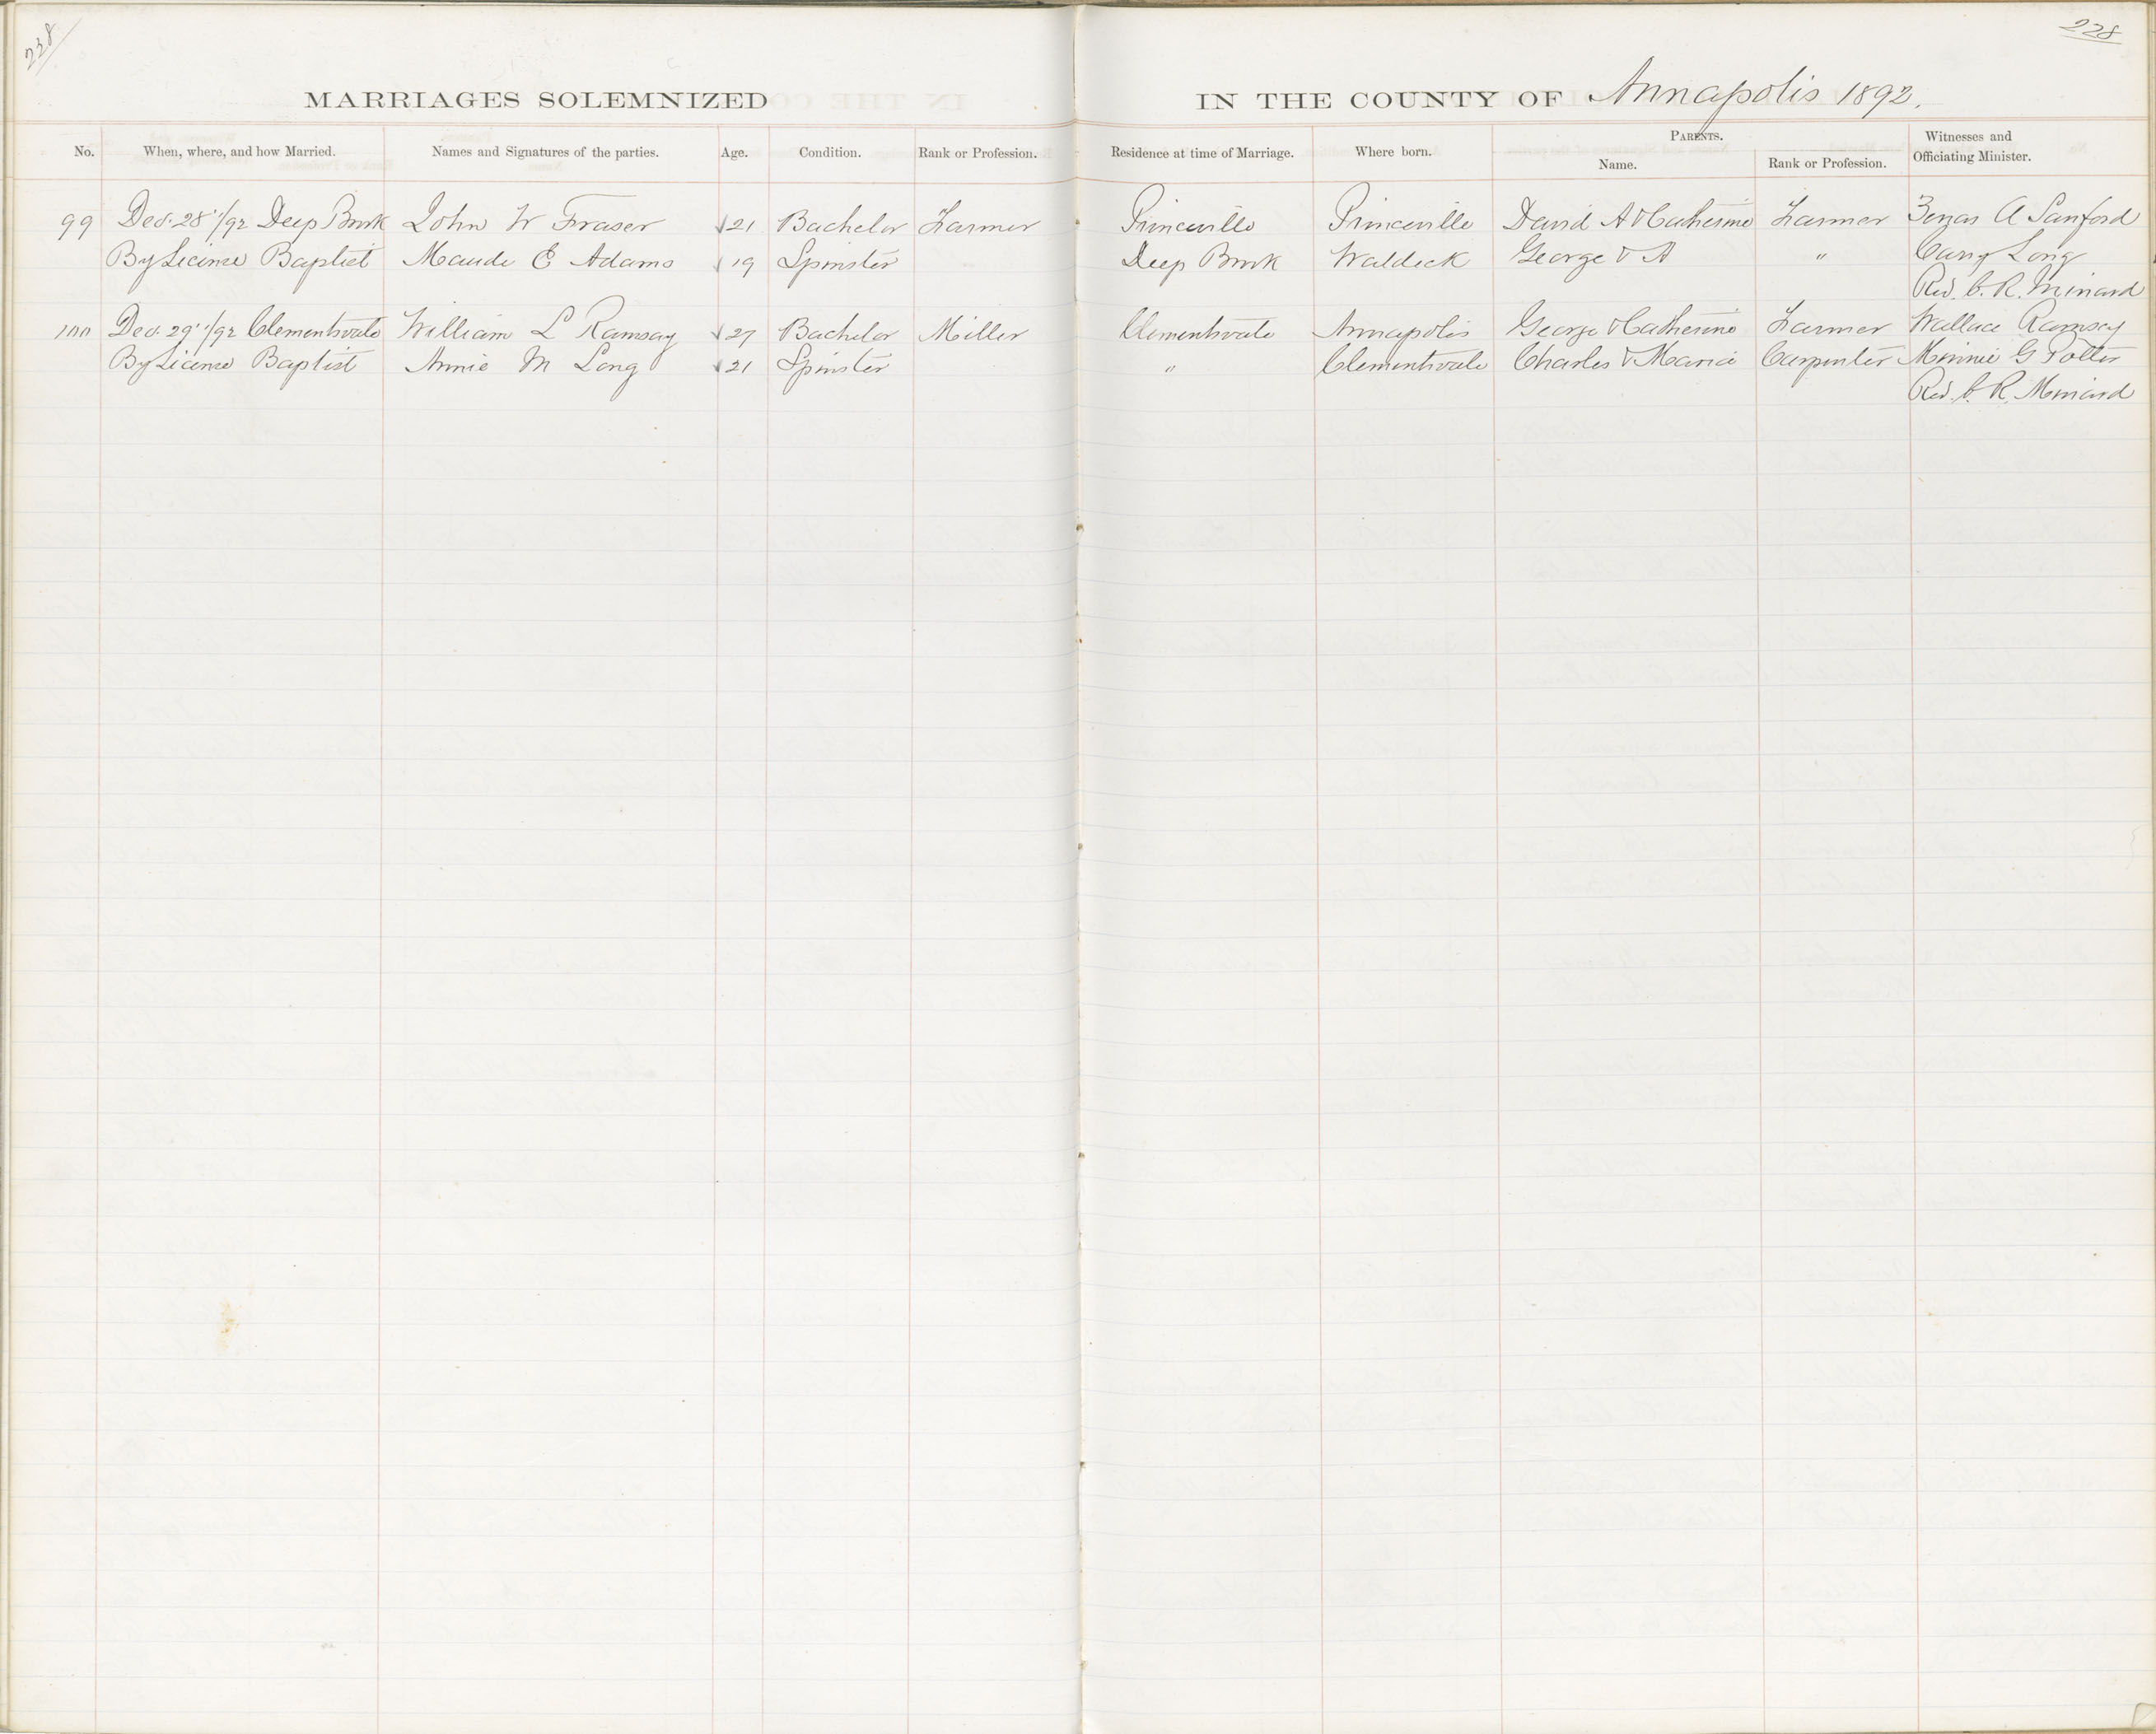 238
228
MARRIAGES SOLEMNIZED IN THE COUNTY OF Annapolis 1892.
No. When, where, and how Married. Names and Signatures of the parties. Age. Condition. Rank or Profession. Residence at time of Marriage. Where born. PARENTS. Name. Rank or Profession. Witnesses and Officiating Minister.
99 Dec. 28"/92 Deep Brook John W Fraser √21 Bachelor Farmer Princeville Princeville David A & Catherine Farmer A Sanford
By License Baptist Maude E Adams √19 Spinster Deep Brook Waldeck George & A " Long
Rev. C. R. Minard
100 Dec. 29"/92 Clementsvale William L Ramsay √27 Bachelor Miller Clementsvale Annapolis George & Catherine Farmer Wallace Ramsey
By License Baptist Annie M Long √21 Spinster " Clementsvale Charles & Maria Carpenter Minnie G Potter
Rev. C. R. Minard